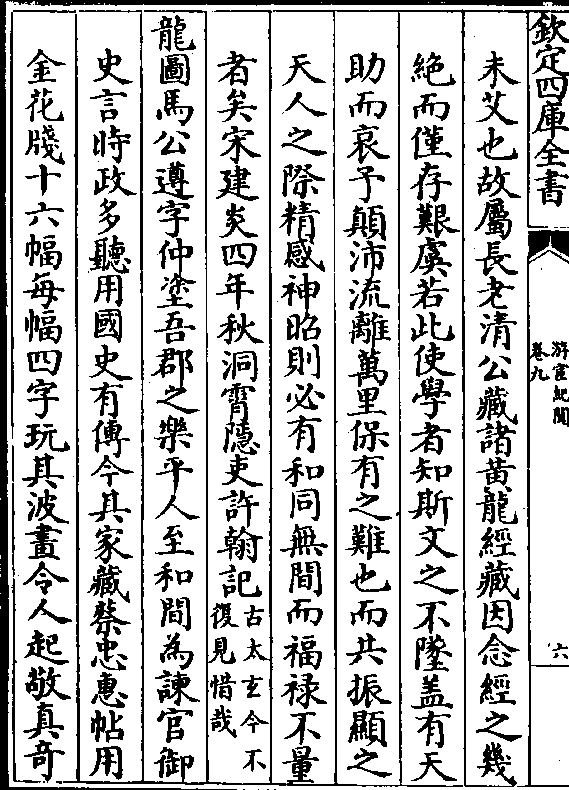 欽定四庫全書
游宦紀聞
卷九
六
未艾也故屬長老清公藏諸黄龍經藏因念經之幾
絶而僅存艱虞若此使學者知斯文之不墜盖有天
助而哀予顛沛流離萬里保有之難也而共振顯之
天人之際精感神昭則必有和同無間而福禄不量
者矣宋建炎四年秋洞霄隱吏許翰記古太玄今不復見惜哉
龍圖馬公遵字仲塗吾郡之樂平人至和間為諫官御
史言時政多聽用國史有傳今其家藏蔡忠惠帖用
金花牋十六幅每幅四字玩其波畫令人起敬真奇